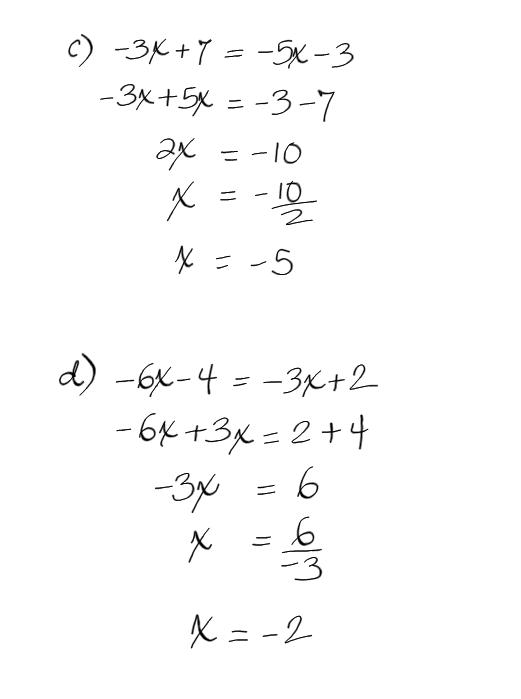 c) -3x+7 = -5x-3
-3x+5x = -3-7
2x = -10
x = -10/2
x = -5
d) -6x-4 = -3x+2
-6x+3x = 2+4
-3x = 6
x = 6/-3
x = -2